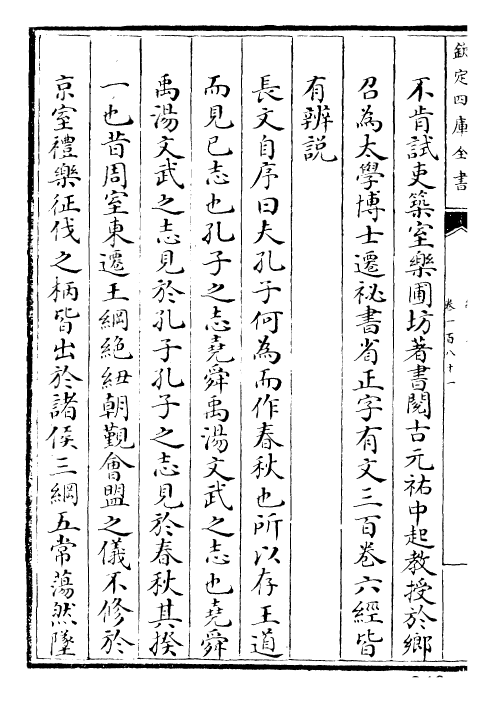 欽定四庫全書
卷一百八十一
不肯試吏築室樂圃坊著書閲古元祐中起教授於鄉
召為太學博士遷祕書省正字有文三百卷六經皆
有辨説
長文自序曰夫孔子何為而作春秋也所以存王道
而見已志也孔子之志堯舜禹湯文武之志也堯舜
禹湯文武之志見於孔子孔子之志見於春秋其揆
一也昔周室東遷王綱絶紐朝覲會盟之儀不修於
京室禮樂征伐之柄皆出於諸侯三綱五常蕩然墜